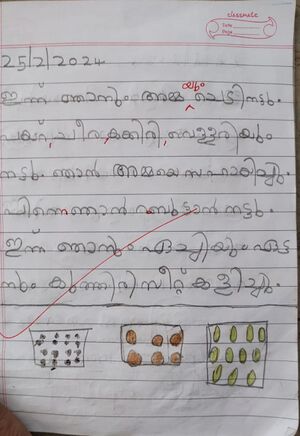 classmate
Date
Page
25/2/2024
യും
ഇന്ന് ഞാനും അമ്മ ചെട്ടിനട്ടു.
പയറ്, ചീര, കക്കിരി, വെള്ളരിയും
നട്ടു. ഞാൻ അമ്മയെ സഹായിച്ചു.
പിന്നെ ഞാൻ റംബുട്ടാൻ നട്ടു.
ഇന്ന് ഞാനും ഏച്ചിയും ഏട്ട
നും കുത്തിരി സീറ്റ് കളിച്ചു.